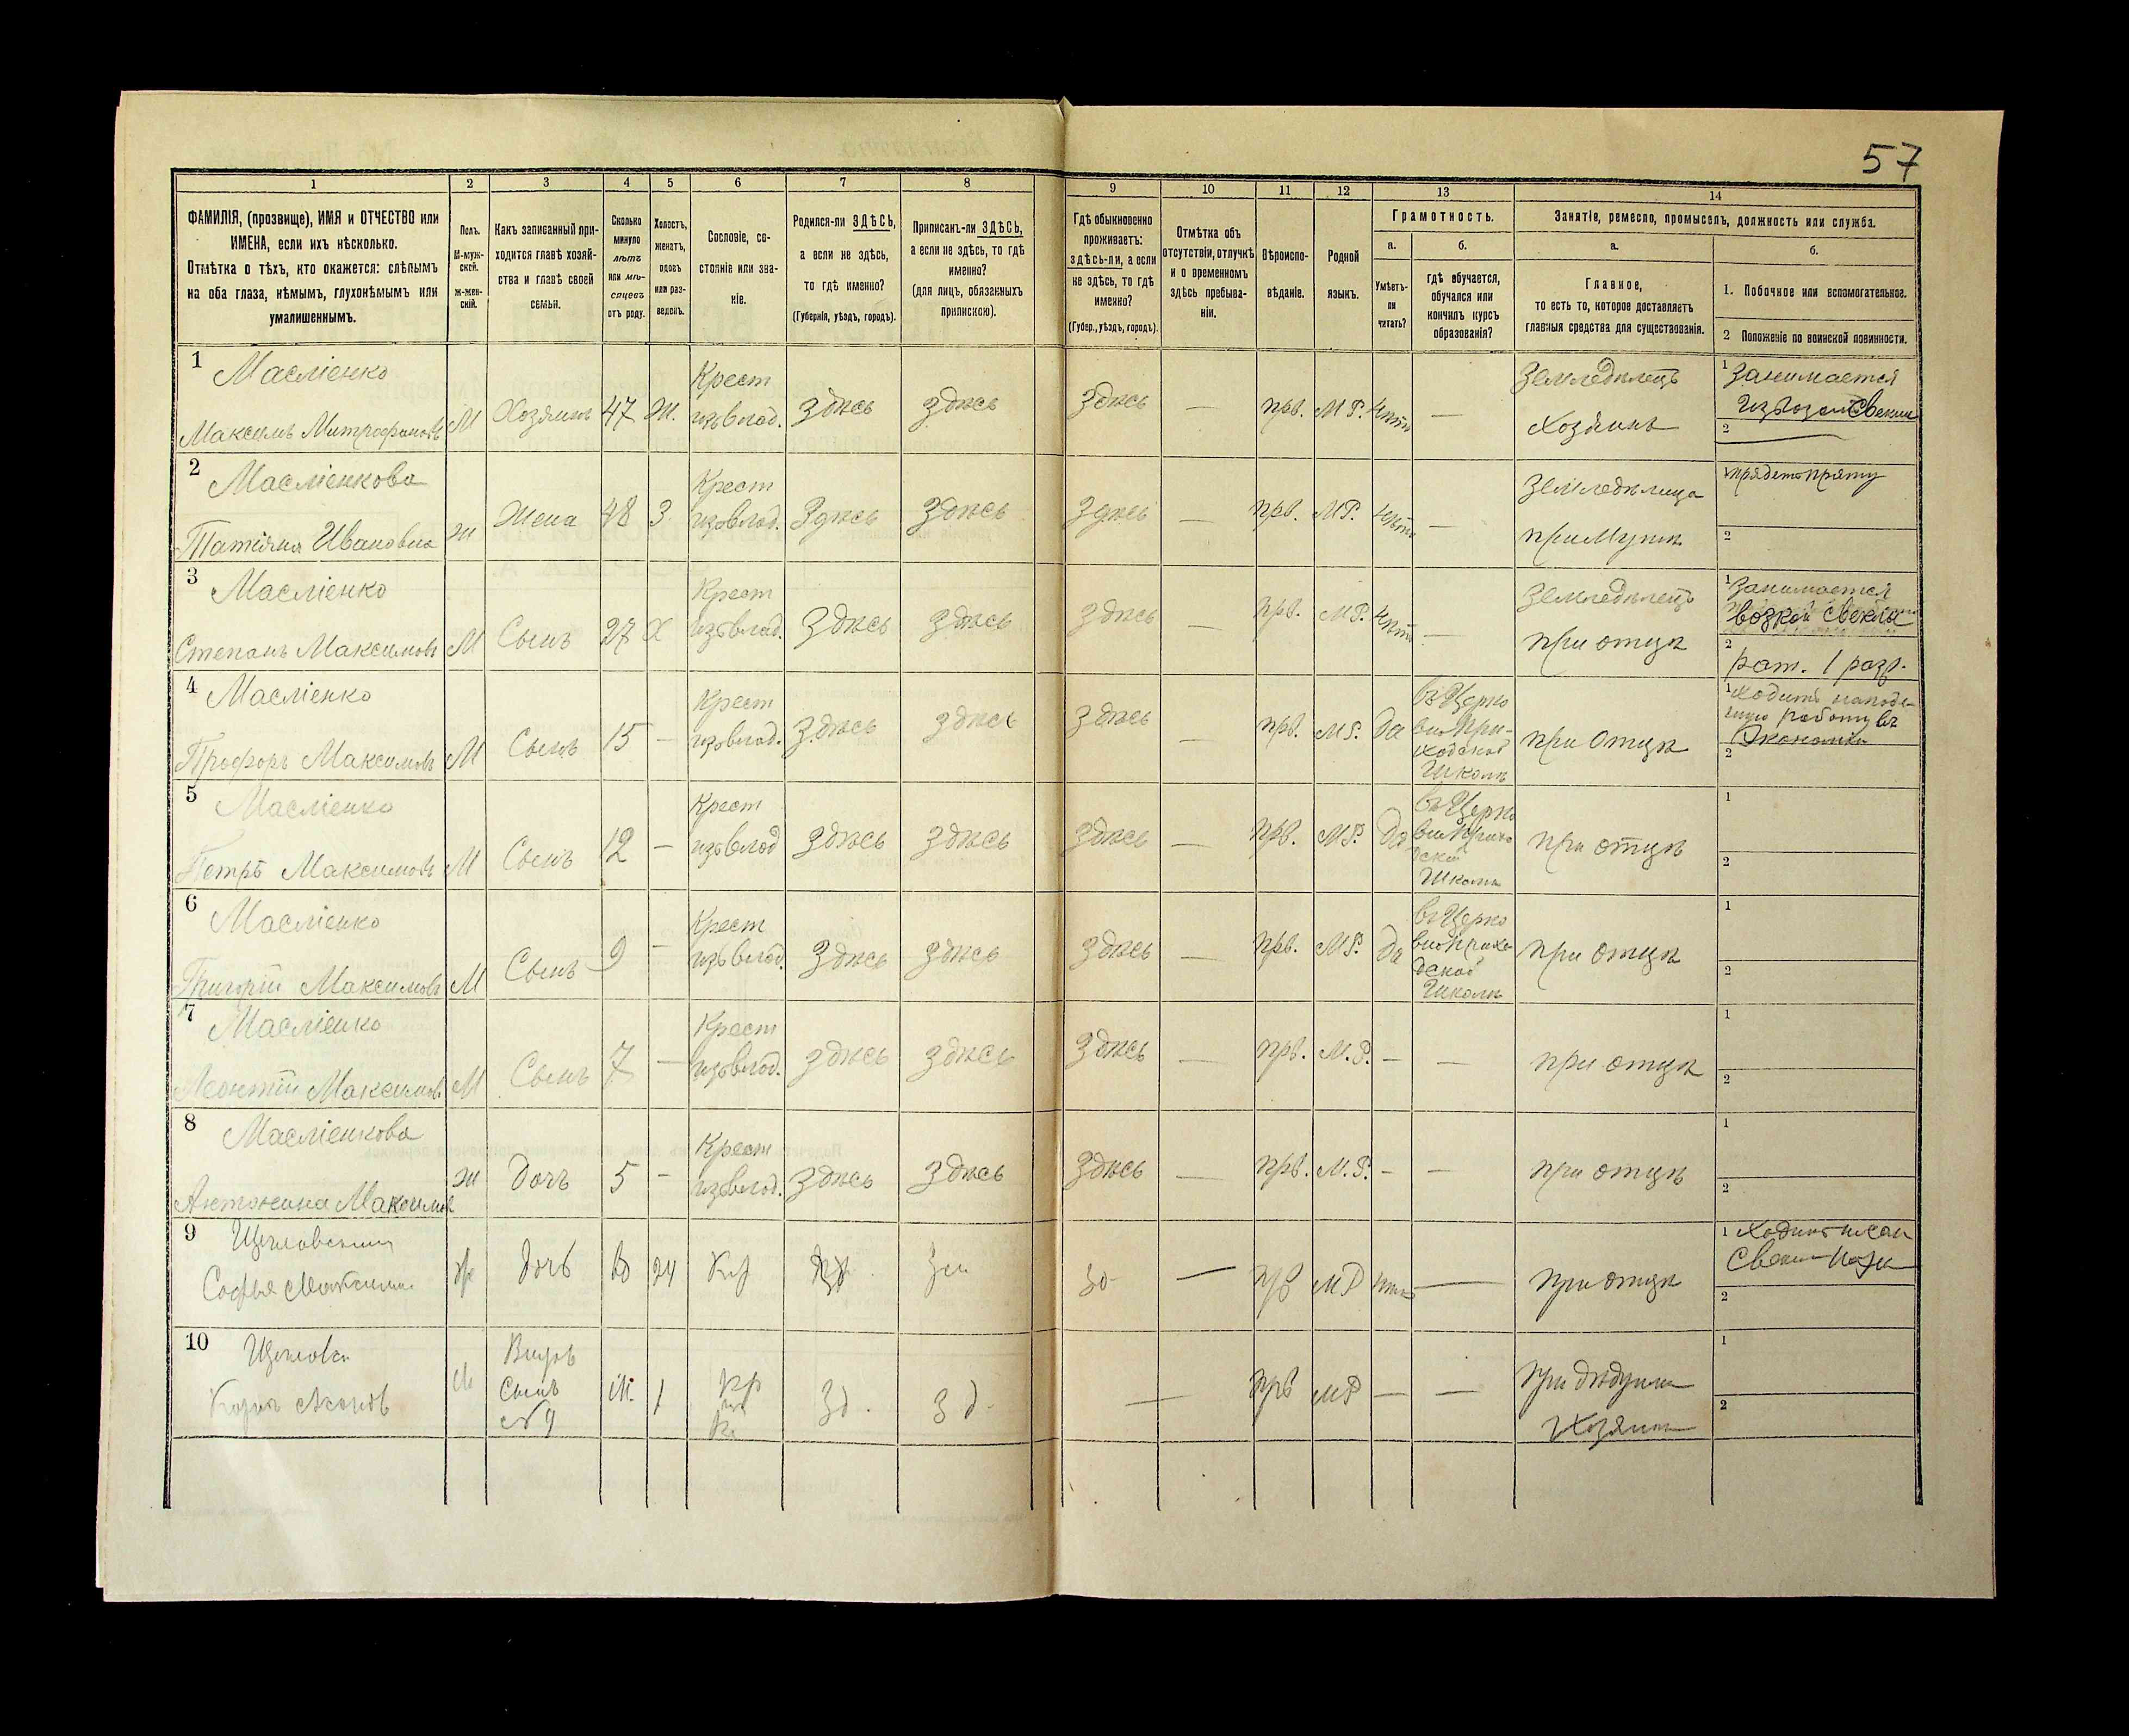 57
1 2 3 4 5 6 7 8 9 10 11 12 13 14
ФАМИЛІЯ, (прозвище), ИМЯ и ОТЧЕСТВО или
ИМЕНА, если ихъ нѣсколько.
Отмѣтка о тѣхъ, кто окажется: слѣпымъ
на оба глаза, нѣмымъ, глухонѣмымъ или
умалишеннымъ.
Полъ.
М-муж-
ской.
Ж-жен-
скій.
Какъ записанный при-
ходится главѣ хозяй-
ства и главѣ своей
семьи.
Сколько
минуло
лѣтъ
или мѣ-
сяцевъ
отъ роду.
Холостъ,
женатъ,
вдовъ
или раз-
веденъ.
Сословіе, со-
стояніе или зва-
ніе.
Родился-ли ЗДѢСЬ,
а если не здѣсь,
то гдѣ именно?
(Губернія, уѣздъ, городъ).
Приписанъ-ли ЗДѢСЬ,
а если не здѣсь, то гдѣ
именно?
(для лицъ, обязанныхъ
припискою).
Гдѣ обыкновенно
проживаетъ:
здѣсь-ли, а если
не здѣсь, то гдѣ
именно?
(Губер., уѣздъ, городъ).
Отмѣтка объ
отсутствіи, отлучкѣ
и о временномъ
здѣсь пребыва-
ніи.
Вѣроиспо-
вѣданіе.
Родной
языкъ.
Грамотность.
а.
Умѣетъ-
ли
читать?
б.
гдѣ обучается,
обучался или
кончилъ курсъ
образованія?
Занятіе, ремесло, промыселъ, должность или служба.
а.
Главное,
то есть то, которое доставляетъ
главныя средства для существованія.
б.
1. Побочное или вспомогательное.
2 Положеніе по воинской повинности.
1 Масліенко
Максимъ Митрофановъ
М
Хозяинъ
47
Ж.
Крест
изъ влад.
Здѣсь
Здѣсь
Здѣсь
—
прв.
М Р.
нѣтъ
—
Земледѣлецъ
Хозяинъ
1 Занимается
2
2 Масліенкова
Татіяна Ивановна
ж
Жена
48
З
Крест
изъ влад.
Здѣсь
Здѣсь
Здѣсь
—
прв.
МР.
нѣтъ
—
Земледѣлица
при Мужѣ
1 прядетъ пряжу
2
3 Масліенко
Степанъ Максимовъ
М
Сынъ
27
Х
Крест
изъ влад.
Здѣсь
Здѣсь
Здѣсь
—
прв.
МР.
нѣтъ
—
Земледѣлецъ
при отцѣ
1 Занимается
возкой Свеклы
2
рат. 1 разр.
4 Масліенко
Максимовъ
М
Сынъ
15
—
Крест
изъ влад.
Здѣсь
здѣсь
Здѣсь
—
прв.
МР.
да
въ Церко
вно При-
ходской
Школѣ
при Отцѣ
1 Ходитъ на поде-
нную работу въ
Экономію
2
5 Масліенко
Петръ Максимовъ
М
Сынъ
12
—
Крест
изъ влад
Здѣсь
Здѣсь
Здѣсь
—
прв.
МР.
Да
въ Церко
вно Прихо
дской
Школѣ
при отцѣ
1
2
6 Масліенко
Григорій Максимовъ
М
Сынъ
9
—
Крест
изъ влад.
Здѣсь
Здѣсь
Здѣсь
—
прв.
МР.
да
въ Церко
вно Прихо
дской
Школѣ
при Отцѣ
1
2
7 Масліенко
Леонтій Максимовъ
М
Сынъ
7
—
Крест
изъ влад.
здѣсь
здѣсь
Здѣсь
—
прв.
М.Р.
—
—
при отцѣ
1
2
8 Масліенкова
Антонина Максимов
ж
Дочь
5
—
Крест
изъ влад.
Здѣсь
Здѣсь
Здѣсь
—
прв.
М.Р.
—
—
при отцѣ
1
2
9
Софья Максим.
Дочь
24
Кр
Зд
—
прв
МР
нѣтъ
—
при отцѣ
1
2
10
Сынъ
№ 9
1
Кр
Зд.
Зд.
—
прв
МР
—
—
при дѣдушкѣ
Хозяинѣ
1
2